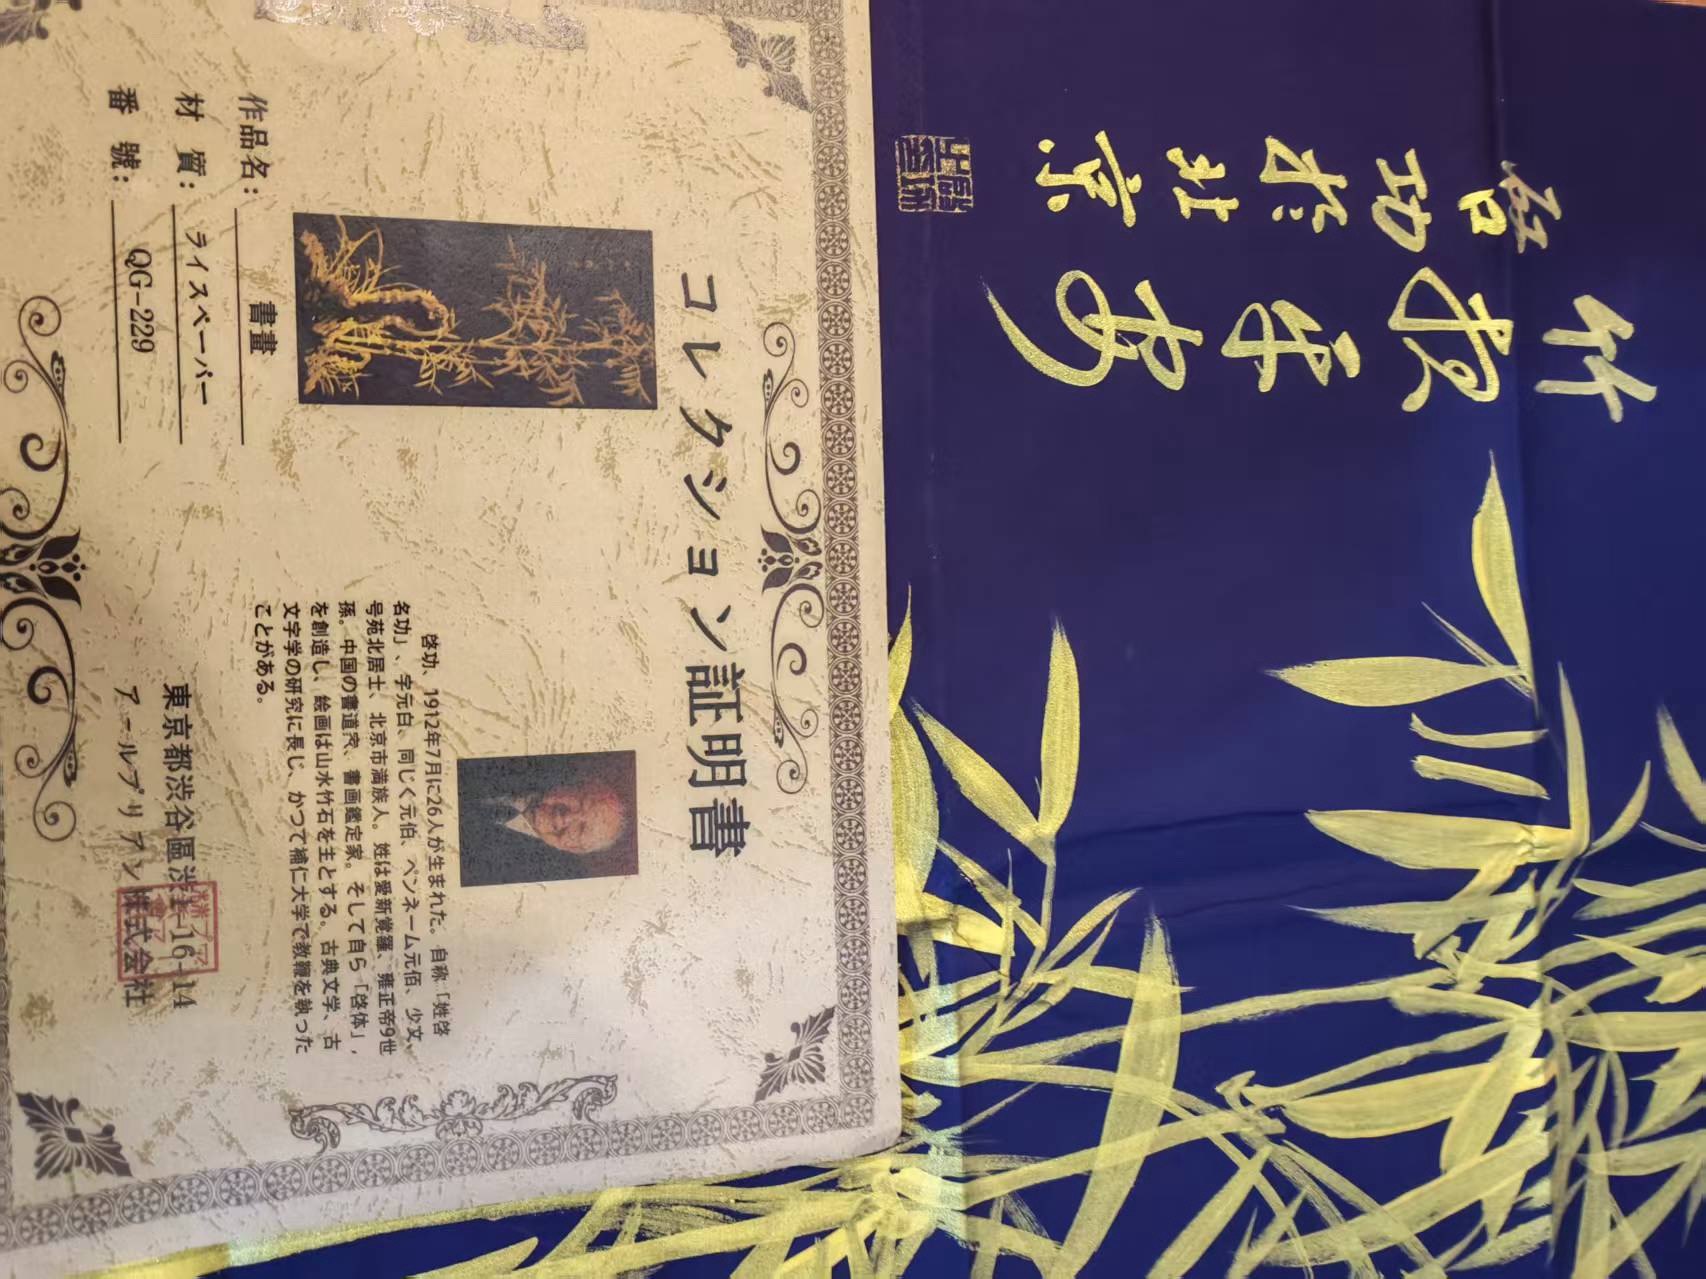 コレクション証明書
作品名: 書畫
材 質: ライスペーパー
番 號: QG-229
啓功、1912年7月に26人が生まれた。自称「姓啓
名功」、字元白、同じく元伯、ペンネーム元佰、少文、
号苑北居士、北京市満族人。姓は愛新覚羅、雍正帝9世
孫。中国の書道家、書画鑑定家。そして自ら「啓体」,
を創造し、絵画は山水竹石を主とする。古典文学、古
文字学の研究に長じ、かつて補仁大学で教鞭を執った
ことがある。
東京都渋谷區渋1-16-14
アールブリアン株式会社
竹报平安
啓功於北京